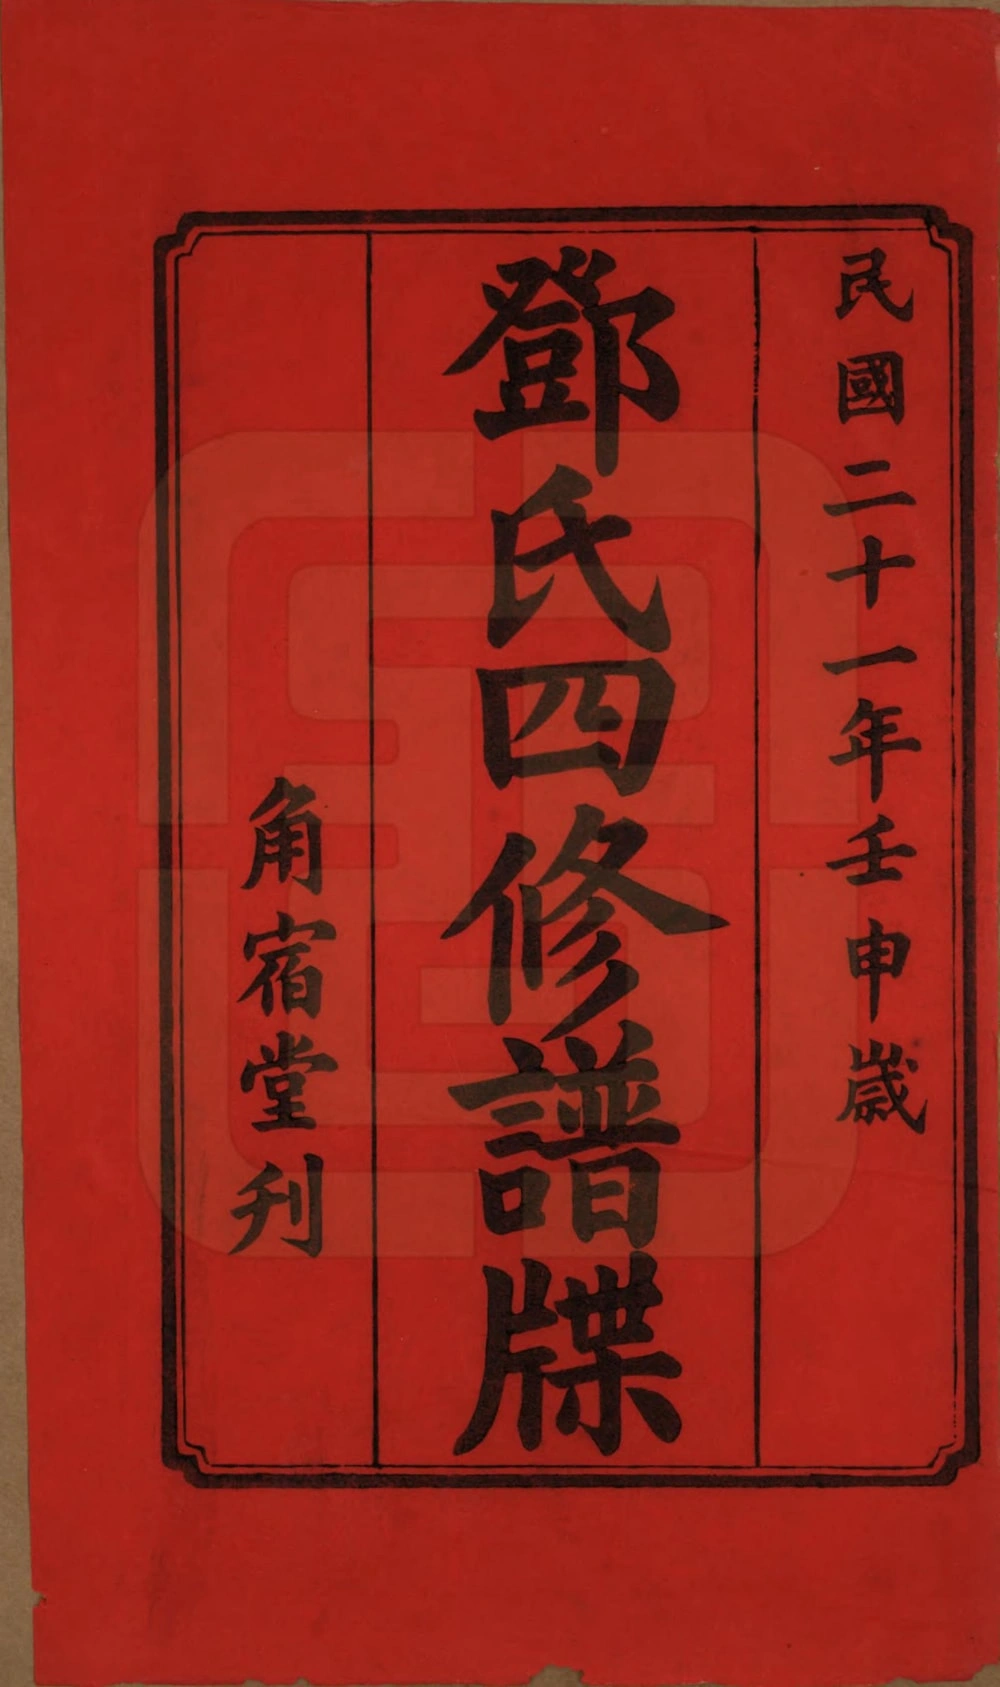 民國二十一年壬申歲
鄧氏四修譜牒
角宿堂刋